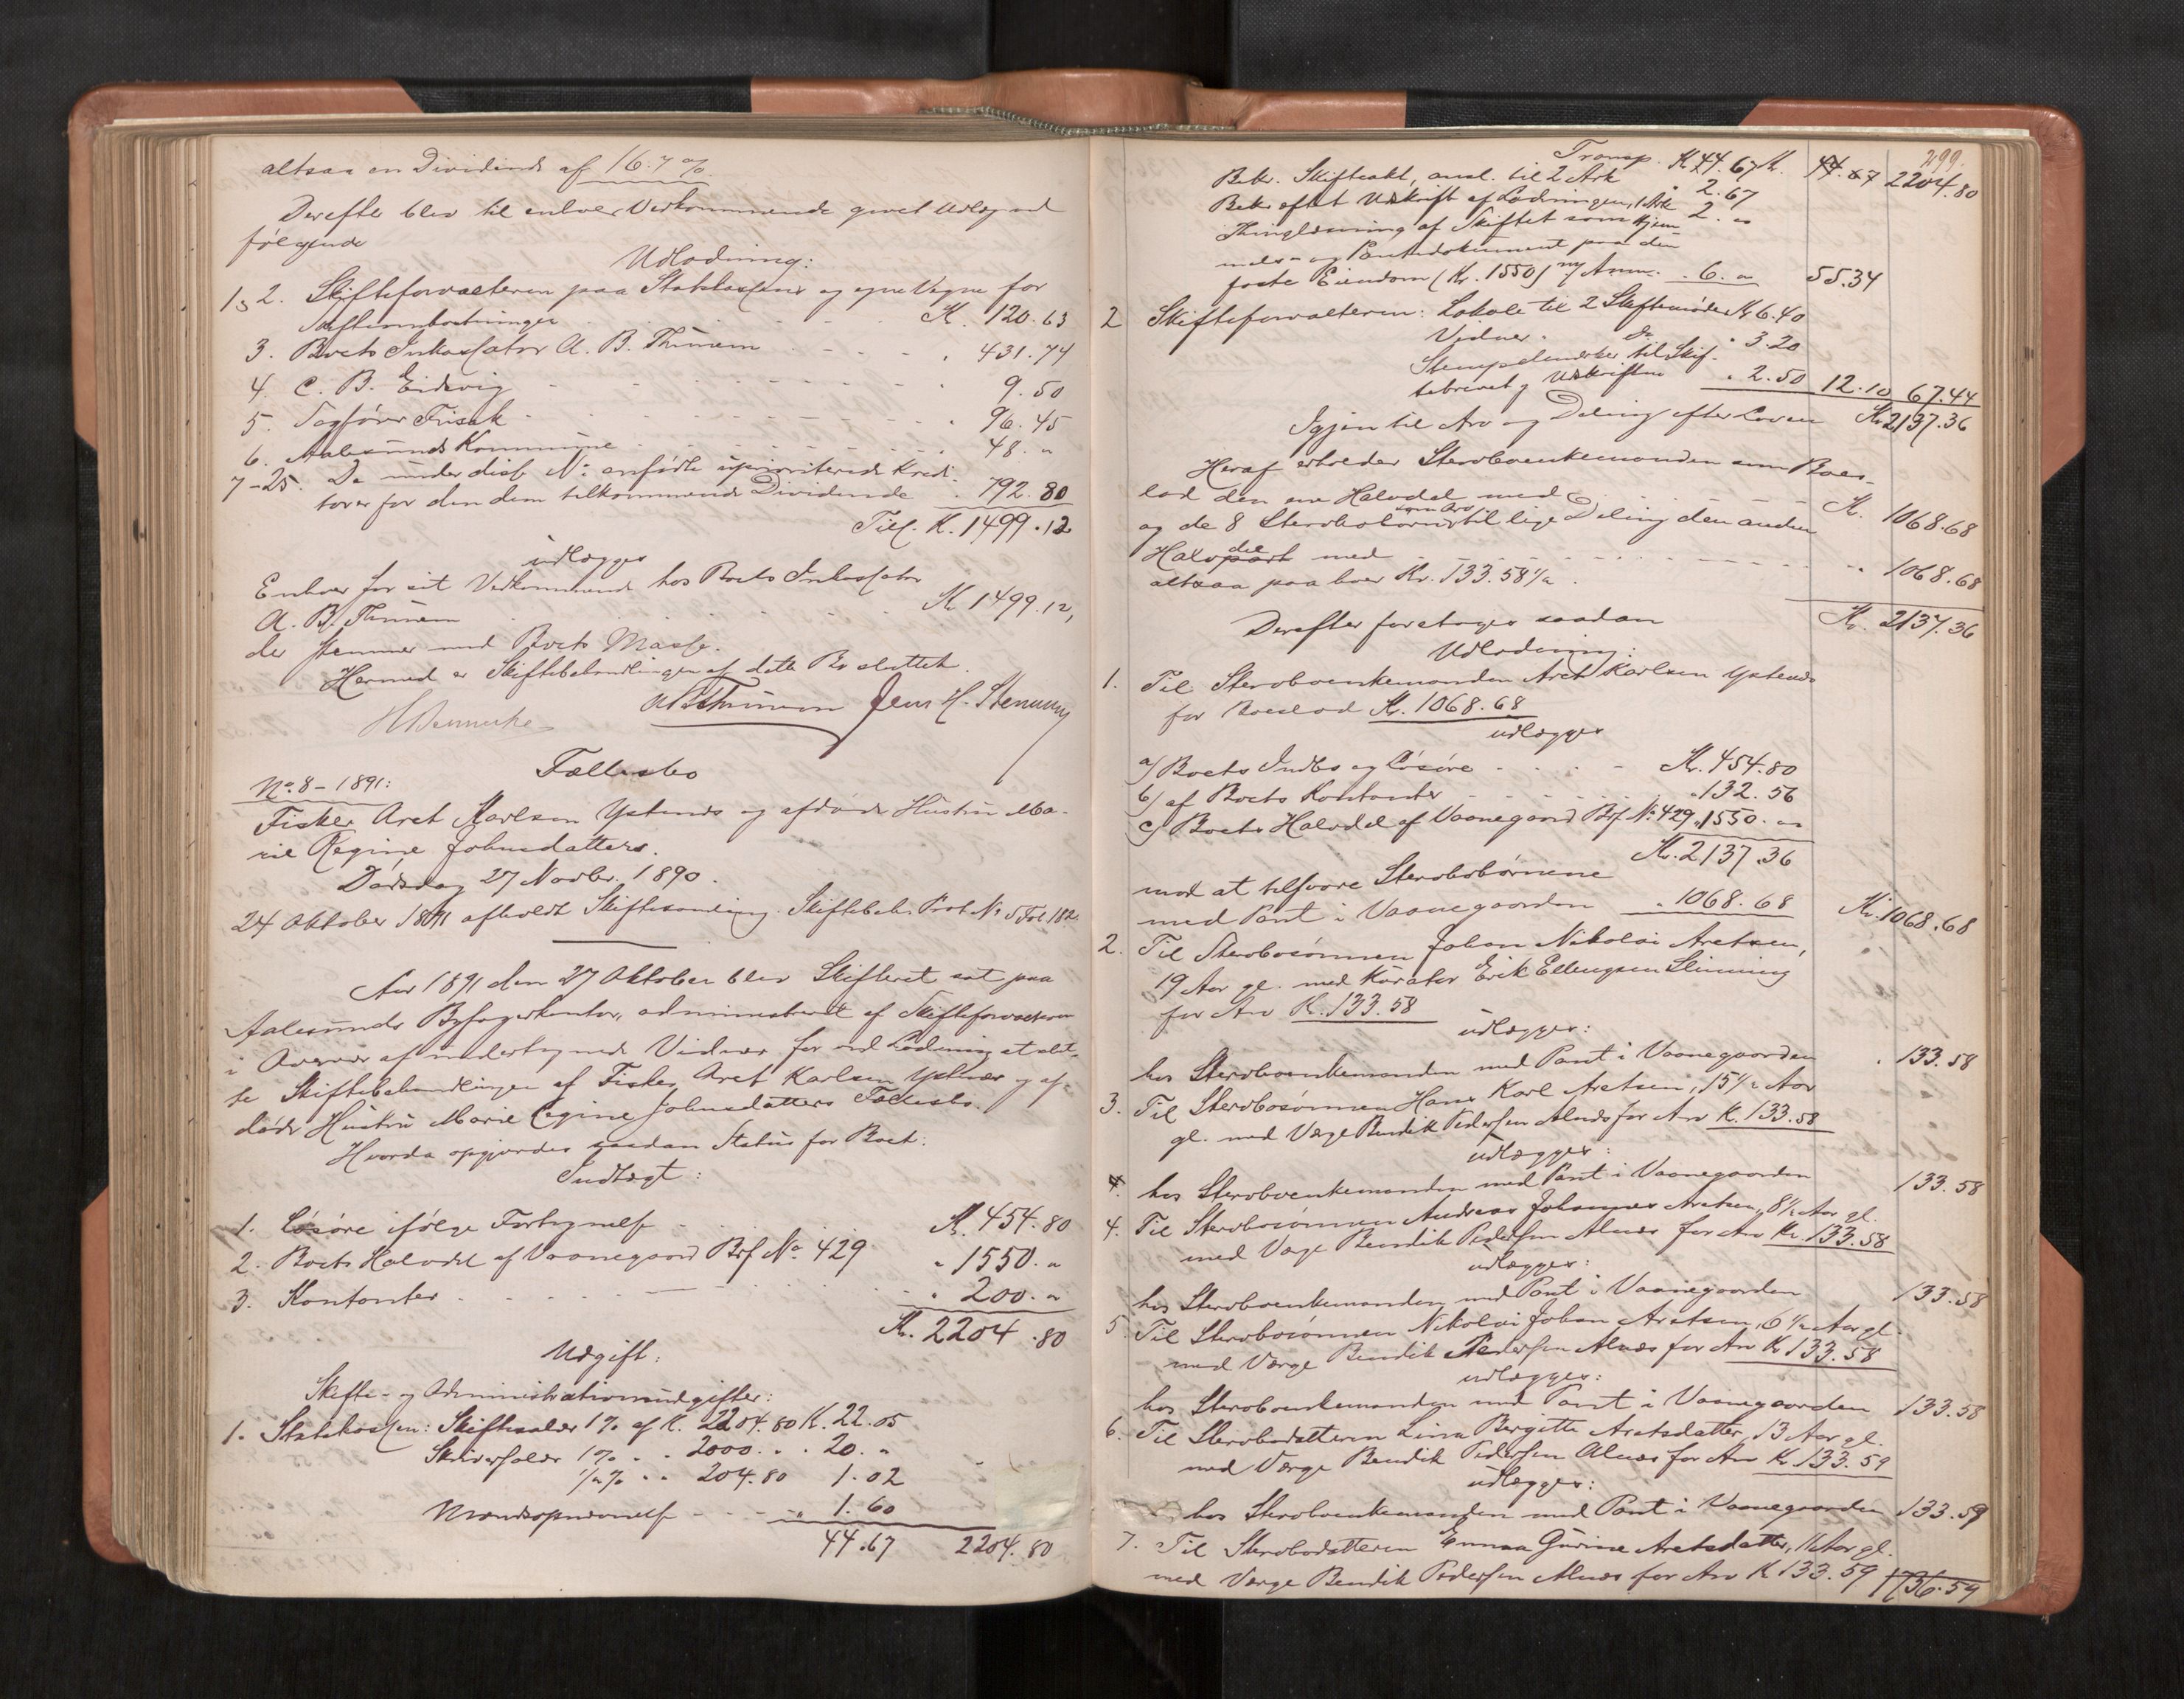 altsaa en Dividende af 16.7 %.
Derefter blev til enhver Vedkommende givet Udlæg ved
følgende
Udlodning:
1 & 2. Skifteforvalteren paa Statskassens og egne Vegne for
Skifteomkostninger K. 120.63
3. Boets Inkassator A. B. Thinnem . 431.74
4. C. B. Eidsvig 9.50
5. Sagfører Friisak 96.45
6. Aalesunds Kommune 48. "
7-25. De under disse No: anførte uprioriterede Kredi-
torer for den dem tilkommende Dividende . 792.80
Tils. K. 1499.12
udlægges
Enhver for sit Vedkommende hos Boets Inkassator
A. B. Thinnem K 1499.12,
der stemmer med Boets Masse.
Hermed er Skiftebehandlingen af dette Bo sluttet.
No. 8 - 1891:
Fællesbo
Fisker Aret Karlsen Ystenes og afdøde Hustru Ma-
rie Regine Johnsdatters.
Dødsdag 27 Novbr. 1890.
24 Oktober 1891 afholdt Skiftesamling. Skiftebeh. Prot. No 5 Fol. 182.
Aar 1891 den 27 Oktober blev Skifteret sat paa
Aalesunds Byfogedkontor, administreret af Skifteforvalteren
i Overvær af undertegnede Vidner for ved Lodning at slut-
te Skiftebehandlingen af Fisker Aret Karlsen Ystenes og af-
døde Hustru Marie Regine Johnsdatters Fællesbo.
Hvorda opgjordes saadan Status for Boet:
Indtægt:
1. Løsøre ifølge Fortegnelse K. 454.80
2. Boets Halvdel af Vaanegaard Brf No. 429 " 1550. "
3. Kontanter " 200. "
K. 2204.80
Udgift:
Skifte- og Administrationsudgifter:
1. Statskassen: Skiftesalær 1% af K. 2204.80 K. 22.05
Skriversalær 1% . . 2000. . . 20. "
1/2 % . . 204.80 1.02
" 1.60
44.67 2204.80
299.
Transp. K 44.67 K. 44.67 2204.80
Bek. Skifteakt, ansl. til 2 Ark " 2.67
Bekræftet Udskrift af Lodningen, 1 Ark 2. "
Thinglæsning af Skiftet som Hjem-
mels- og Pantedokument paa den
faste Eiendom (Kr. 1550) m/ Anm. . 6. " 55.34
2 Skifteforvalteren: Lokale til 2 Skiftemøder K 6.40
Vidner . do " 3.20
Stempelmærker til Skif-
tebrevet og Udskriften . 2.50 12.10 67.44
Igjen til Arv og Deling efter Loven Kr 2137.36
Heraf erholder Sterboenkemanden som Boes-
lod den ene Halvdel med K. 1068.68
og de 8 Sterbobørn som Arv til lige Deling den anden
Halvpart del med " 1068.68
altsaa paa hver Kr. 133.58 1/2.
K. 2137.36
Derefter foretoges saadan
Udlodning:
1. Til Sterboenkemanden Aret Karlsen Ystenes
for Boeslod Kr. 1068.68
udlægges
a) Boets Indbo og Løsøre Kr. 454.80
b) af Boets Kontanter " 132.56
c) Boets Halvdel af Vaanegaard Brf. No. 429 " 1550. "
Kr. 2137.36
mod at tilsvare Sterbobørnene
med Pant i Vaanegaarden . 1068.68 Kr. 1068.68
2. Til Sterbosønnen Johan Nikolai Aretsen,
19 Aar gl. med Kurator Erik Ellingsen Slinning
for Arv K. 133.58
udlægges:
hos Sterboenkemanden med Pant i Vaanegaarden . 133.58
3. Til Sterbosønnen Hans Karl Aretsen, 15 1/2 Aar
gl. med Værge Bendik Pedersen Alnæs for Arv K. 133.58
udlægges:
hos Sterboenkemanden med Pant i Vaanegaarden 133.58
4. Til Sterbosønnen Andreas Johannes Aretsen, 8 1/2 Aar gl.
med Værge Bendik Pedersen Alnæs for Arv Kr. 133.58
udlægges:
hos Sterboenkemanden med Pant i Vaanegaarden 133.58
5. Til Sterbosønnen Nikolai Johan Aretsen, 6 1/2 Aar gl.
med Værge Bendik Pedersen Alnæs for Arv K 133.58
udlægges:
hos Sterboenkemanden med Pant i Vaanegaarden 133.58
6. Til Sterbodatteren Lina Bergitte Aretsdatter, 13 Aar gl.
med Værge Bendik Pedersen Alnæs for Arv Kr. 133.59
udlægges:
hos Sterboenkemanden med Pant i Vaanegaarden 133.59
7. Til Sterbodatteren Emma Gurine Aretsdatter, 11 Aar gl.
med Værge Bendik Pedersen Alnæs for Arv K 133.59 1736.59